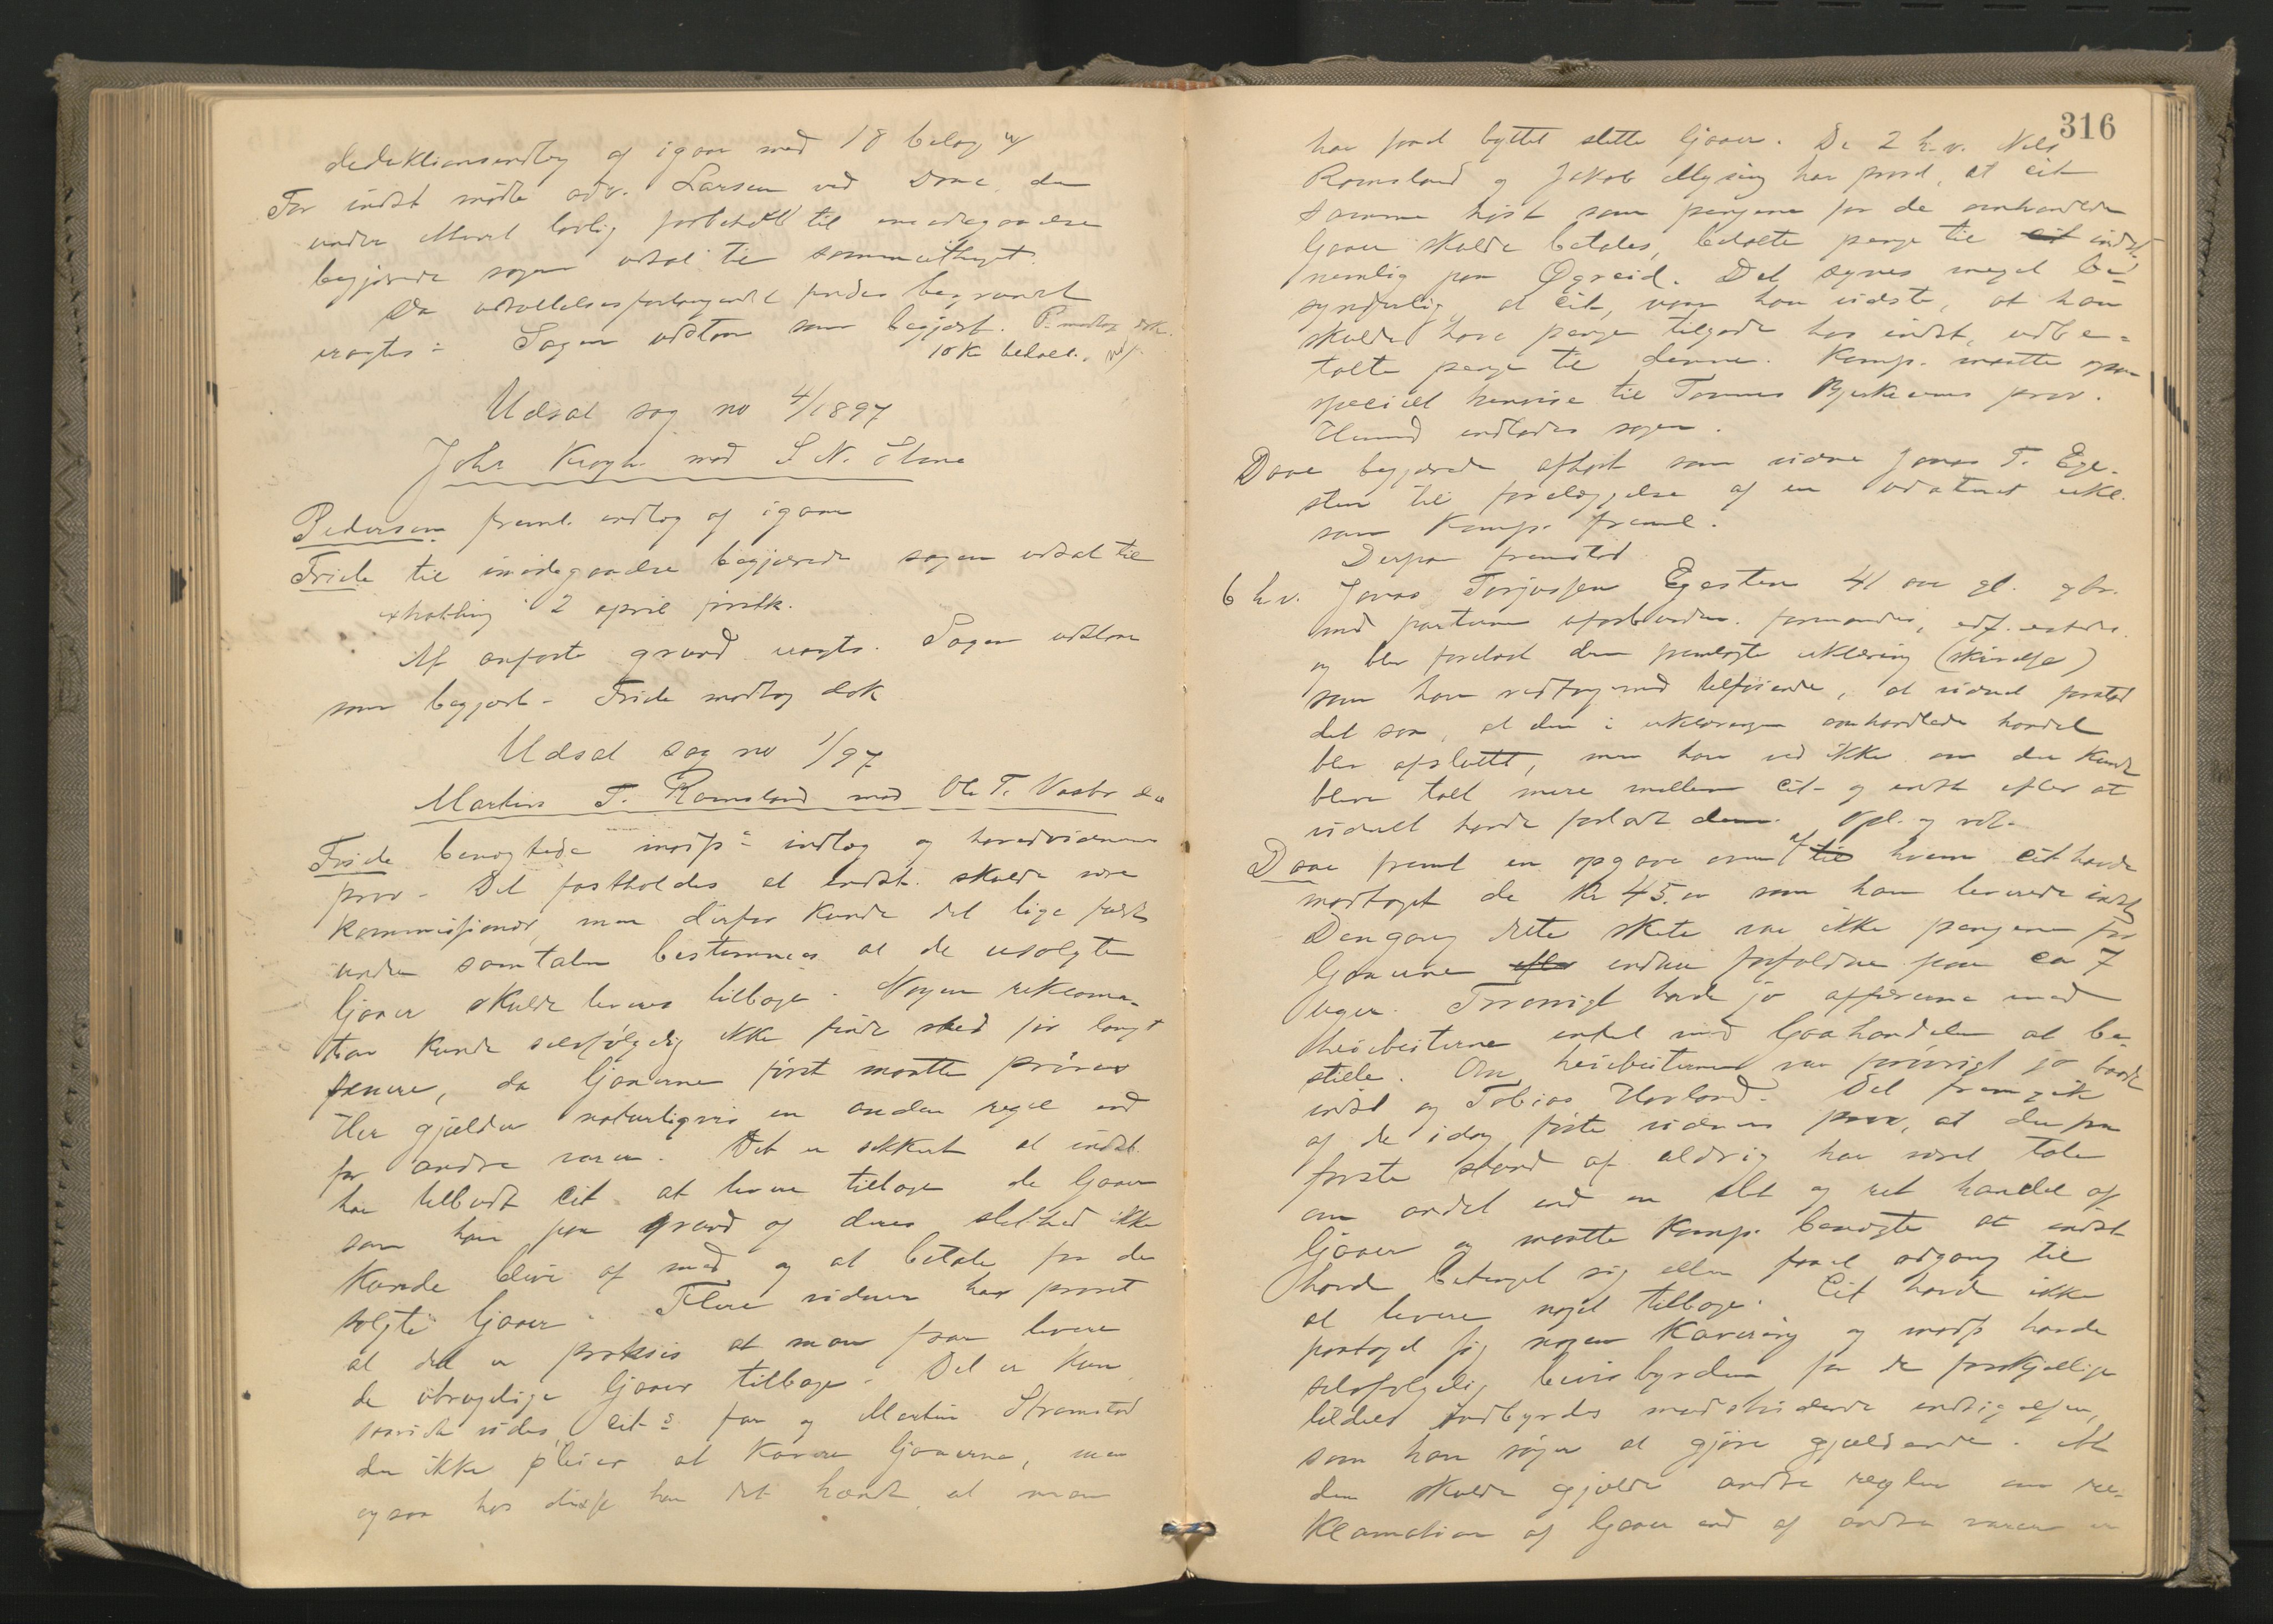 deduktionsindlæg af igaar med 18 bilag
For indst mødte adv. Larsen ved Daae, der
under lovlig forbehold til imødegaaelse
begjærede sagen udsat til sommerthinget.
Da udsættelsesforlangendet findes begrundet
eragtes: Sagen udstaar som begjært. P. modtog dok.
10 K betalt.
Udsat sag no 4/1897
John Krogh mod S N.
Pedersen freml. indlæg af igaar
Friele til imødegaaelse begjærede sagen udsat til
extrathing 2 april førstk.
Af anførte grund eragtes: Sagen udstaar
som begjært - Friele modtog dok
Udsat sag no 1/97
Martin T. Ramsland mod Ole T.
Friele benegtede modp.s indlæg og hovedvidnernes
prov - Det fastholdes at indst. skulde være
kommissionær, men derfor kunde det lige fuldt
under samtalen bestemmes at de usolgte
ljaaer skulde leveres tilbage. Nogen reklama-
tion kunde selvfølgelig ikke finde sted før langt
senere, da ljaaerne først maatte prøves
Her gjælder naturligvis en anden regel end
for andre varer. Det er sikkert at indst
har tilbudt cit. at levere tilbage de ljaaer
som han paa grund af deres slethed ikke
kunde blive af med og at betale for de
solgte ljaaer. Flere vidner har provet
at det er praksis at man faar levere
de ubrugelige ljaaer tilbage. Det er kun
saavidt vides, cit.s far og Martin Stramstad
der ikke pleier at kavere ljaaerne, men
ogsaa hos disse har det hændt at man
316
har faaet byttet slette ljaaer. De 2 h.v. Nils
Ramsland og Jakob Mysing har provd, at cit
samme høst som pengene for de omhandlede
ljaaer skulde betales, betalte penge til cit indst.
nemlig paa Øgreid. Det synes meget be-
synderlig, at cit, naar han vidste, at han
skulde have penge tilgode hos indst, udbe-
talte penge til denne. Komp. maatte ogsaa
specielt henvise til Tønnes Bjerkreims prov.
Hermed indlodes sagen.
Daae begjærede afhørt som vidne Jonas T. Ege-
sten til forelæggelse af en udateret erkl.
som Komp. freml.
Derpaa fremstod
6 h.v. Jonas Torjussen Egesten 41 aar gl. gbr.
med parterne uforbunden. formandes, edf. estedes.
og blev forelæst den fremlagte erklæring (skisse)
som han vedtog med tilføiende, at vidnet forstod
det saa, at den i erklæringen omhandlede handel
blev afsluttet, men han ved ikke om der kunde
blive talt mere mellem cit- og indst efter at
vidnet havde forladt dem. Opl. og vedt.
Daae freml en opgave over af til hvem cit havde
modtaget de Kr 45.00 som han leverede indst
Dengang dette skete var ikke pengene for
ljaaerne efter endnu forfaldne paa ca 7
uger. Forøvrigt havde jo affærerne med
heibeiterne intet med ljaahandelen at be-
stille. Om heibeiterne var forøvrigt jo baade
indst og Tobias Havland. Det fremgik
af de idag førte vidners prov, at der fra
første stund af aldrig har været tale
om andet end en slet og ret handel af
ljaaer og maatte Komp. benegte at indst
havde betinget sig eller faaet adgang til
at levere noget tilbage. Cit havde ikke
paataget sig nogen kavering og modp havde
selvfølgelig bevisbyrden for de forskjellige
tildels indbyrdes modstridende indsigelser,
som han søger at gjøre gjældende. At
der skulde gjælde andre regler om re-
klamation af ljaaer end af andre varer er